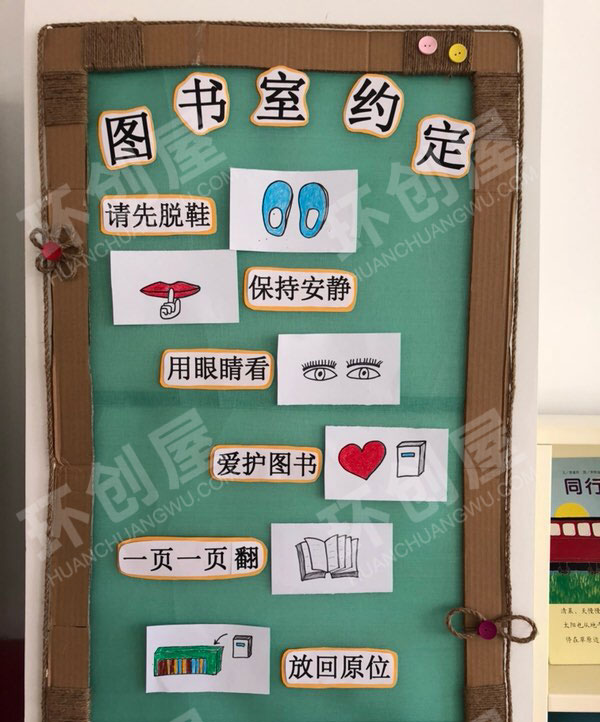 图书室约定
请先脱鞋
保持安静
用眼睛看
爱护图书
一页一页翻
放回原位
同行
环创屋
HUANCHUANGWU.COM
环创屋
HUANCHUANGWU.COM
环创屋
HUANCHUANGWU.COM
环创屋
HUANCHUANGWU.COM